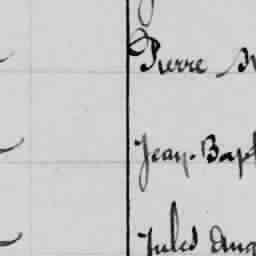 Pierre
Jean-Bapt
Jules Aug